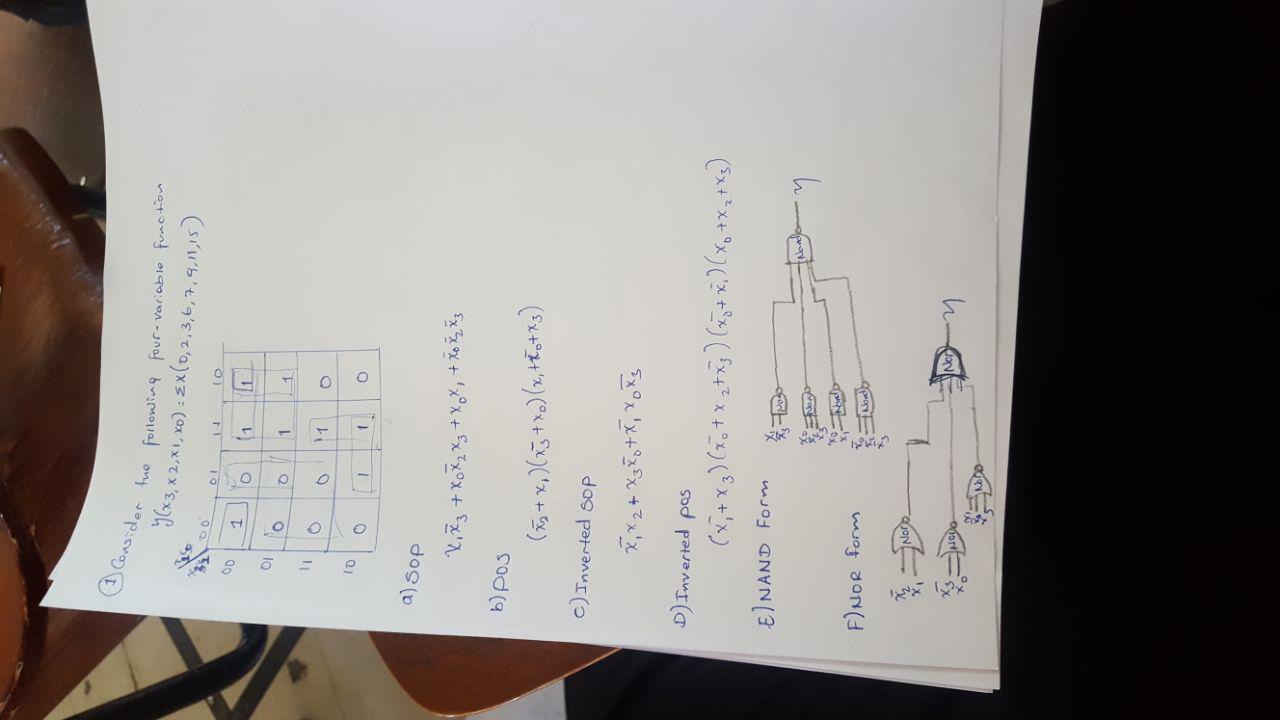 ① Consider the following four-variable function
y(x3, x2, x1, x0) = Σx(0,2,3,6,7,9,11,15)
00 01 11 10
00 1 0 1 1
01 0 0 1 1
11 0 0 1 0
10 0 1 1 0
a) SOP
x₁x̄₃ + x₀x̄₂x₃ + x₀x₁ + x̄₀x̄₂x̄₃
b) pos
(x̄₂ + x₁)(x̄₃ + x₀)(x₁ + x̄₀ + x₃)
c) Inverted SOP
x̄₁x₂ + x₃x̄₀ + x̄₁x₀x̄₃
D) Inverted pos
(x̄₁ + x₃)(x̄₀ + x₂ + x̄₃)(x̄₀ + x̄₁)(x₀ + x₂ + x₃)
E) NAND Form
x₁
x̄₃
Nand
x₀
x̄₂
x₃
Nand
Nand
y
x₀
x₁
Nand
x̄₀
x̄₂
x̄₃
Nand
F) NOR form
x̄₂
x₁
Nor
x̄₃
x₀
Nor
Nor
y
x₁
Nor